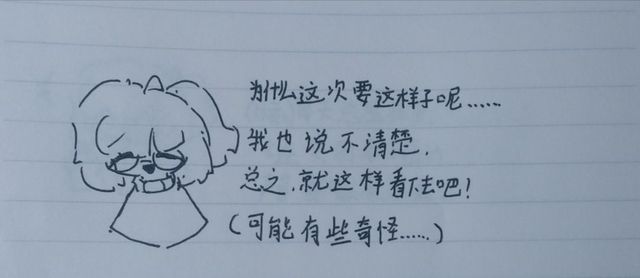 为什么这次要这样子呢……
我也说不清楚，
总之，就这样看下去吧！
（可能有些奇怪……）